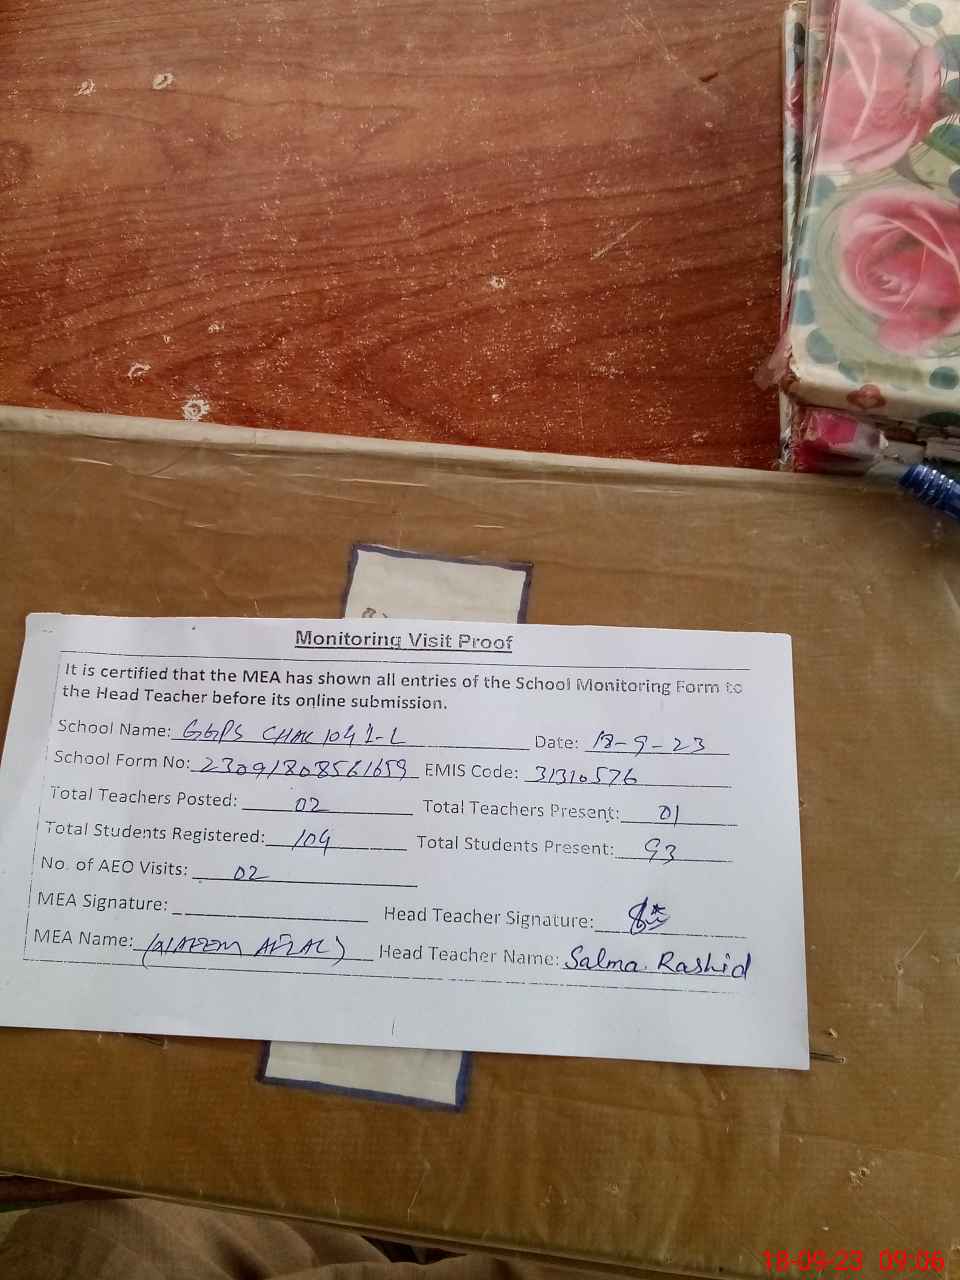 Monitoring Visit Proof
It is certified that the MEA has shown all entries of the School Monitoring Form to
the Head Teacher before its online submission.
School Name: GGPS CHAK 104 1-L Date: 18-9-23
School Form No: 23091808561659 EMIS Code: 31310576
Total Teachers Posted: 02 Total Teachers Present: 01
Total Students Registered: 104 Total Students Present: 93
No. of AEO Visits: 02
MEA Signature: Head Teacher Signature:
MEA Name: Head Teacher Name: Salma Rashid
18-09-23 09:06